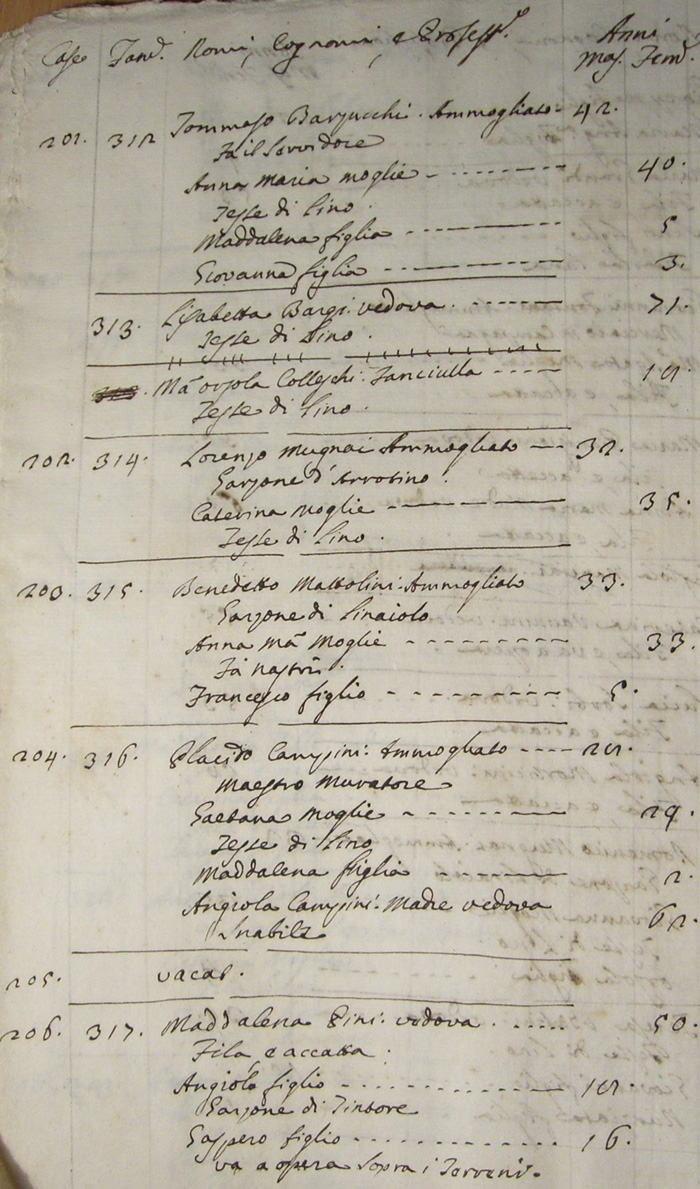 Case Fam.e Nomi, Cognomi, e Profess.i Anni
Mas. Fem.
201. 312 Tommaso Barzucchi. Ammogliato - 42.
Fà il Servidore
Anna Maria Moglie - 40.
Tesse di Lino.
Maddalena figlia - 5
Giovanna figlia - 3.
313. Lisabetta Bargi. vedova. - 71.
Tesse di Lino.
M.a Orsola Colleschi. Fanciulla -
Tesse di Lino.
202. 314. Lorenzo Mugnai Ammogliato - 32.
Garzone d'Arrotino.
Caterina Moglie - 35.
Tesse di Lino.
203. 315. Benedetto Mattolini. Ammogliato 33.
Garzone di Linaiolo
Anna M.a Moglie - 33.
Fà nastri.
Francesco figlio - 5.
204. 316. Placido Campini. Ammogliato -
Maestro Muratore
Gaetana Moglie - 29.
Tesse di Lino
Maddalena figlia - 2.
Angiola Campini. Madre vedova 62.
Inabile
205. vacat.
206. 317. Maddalena Pini. vedova. 50.
Fila, e accatta.
Angiolo figlio -
Garzone di Tintore
Gaspero figlio - 16.
va a opera sopra i Terreni.